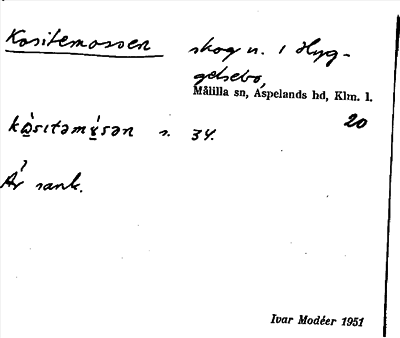 Kositemossen skog n. i Hyg-
gelsebo,
Målilla sn, Aspelands hd, Klm. l.
20
s. 34.
Är sank.
Ivar Modéer 1951